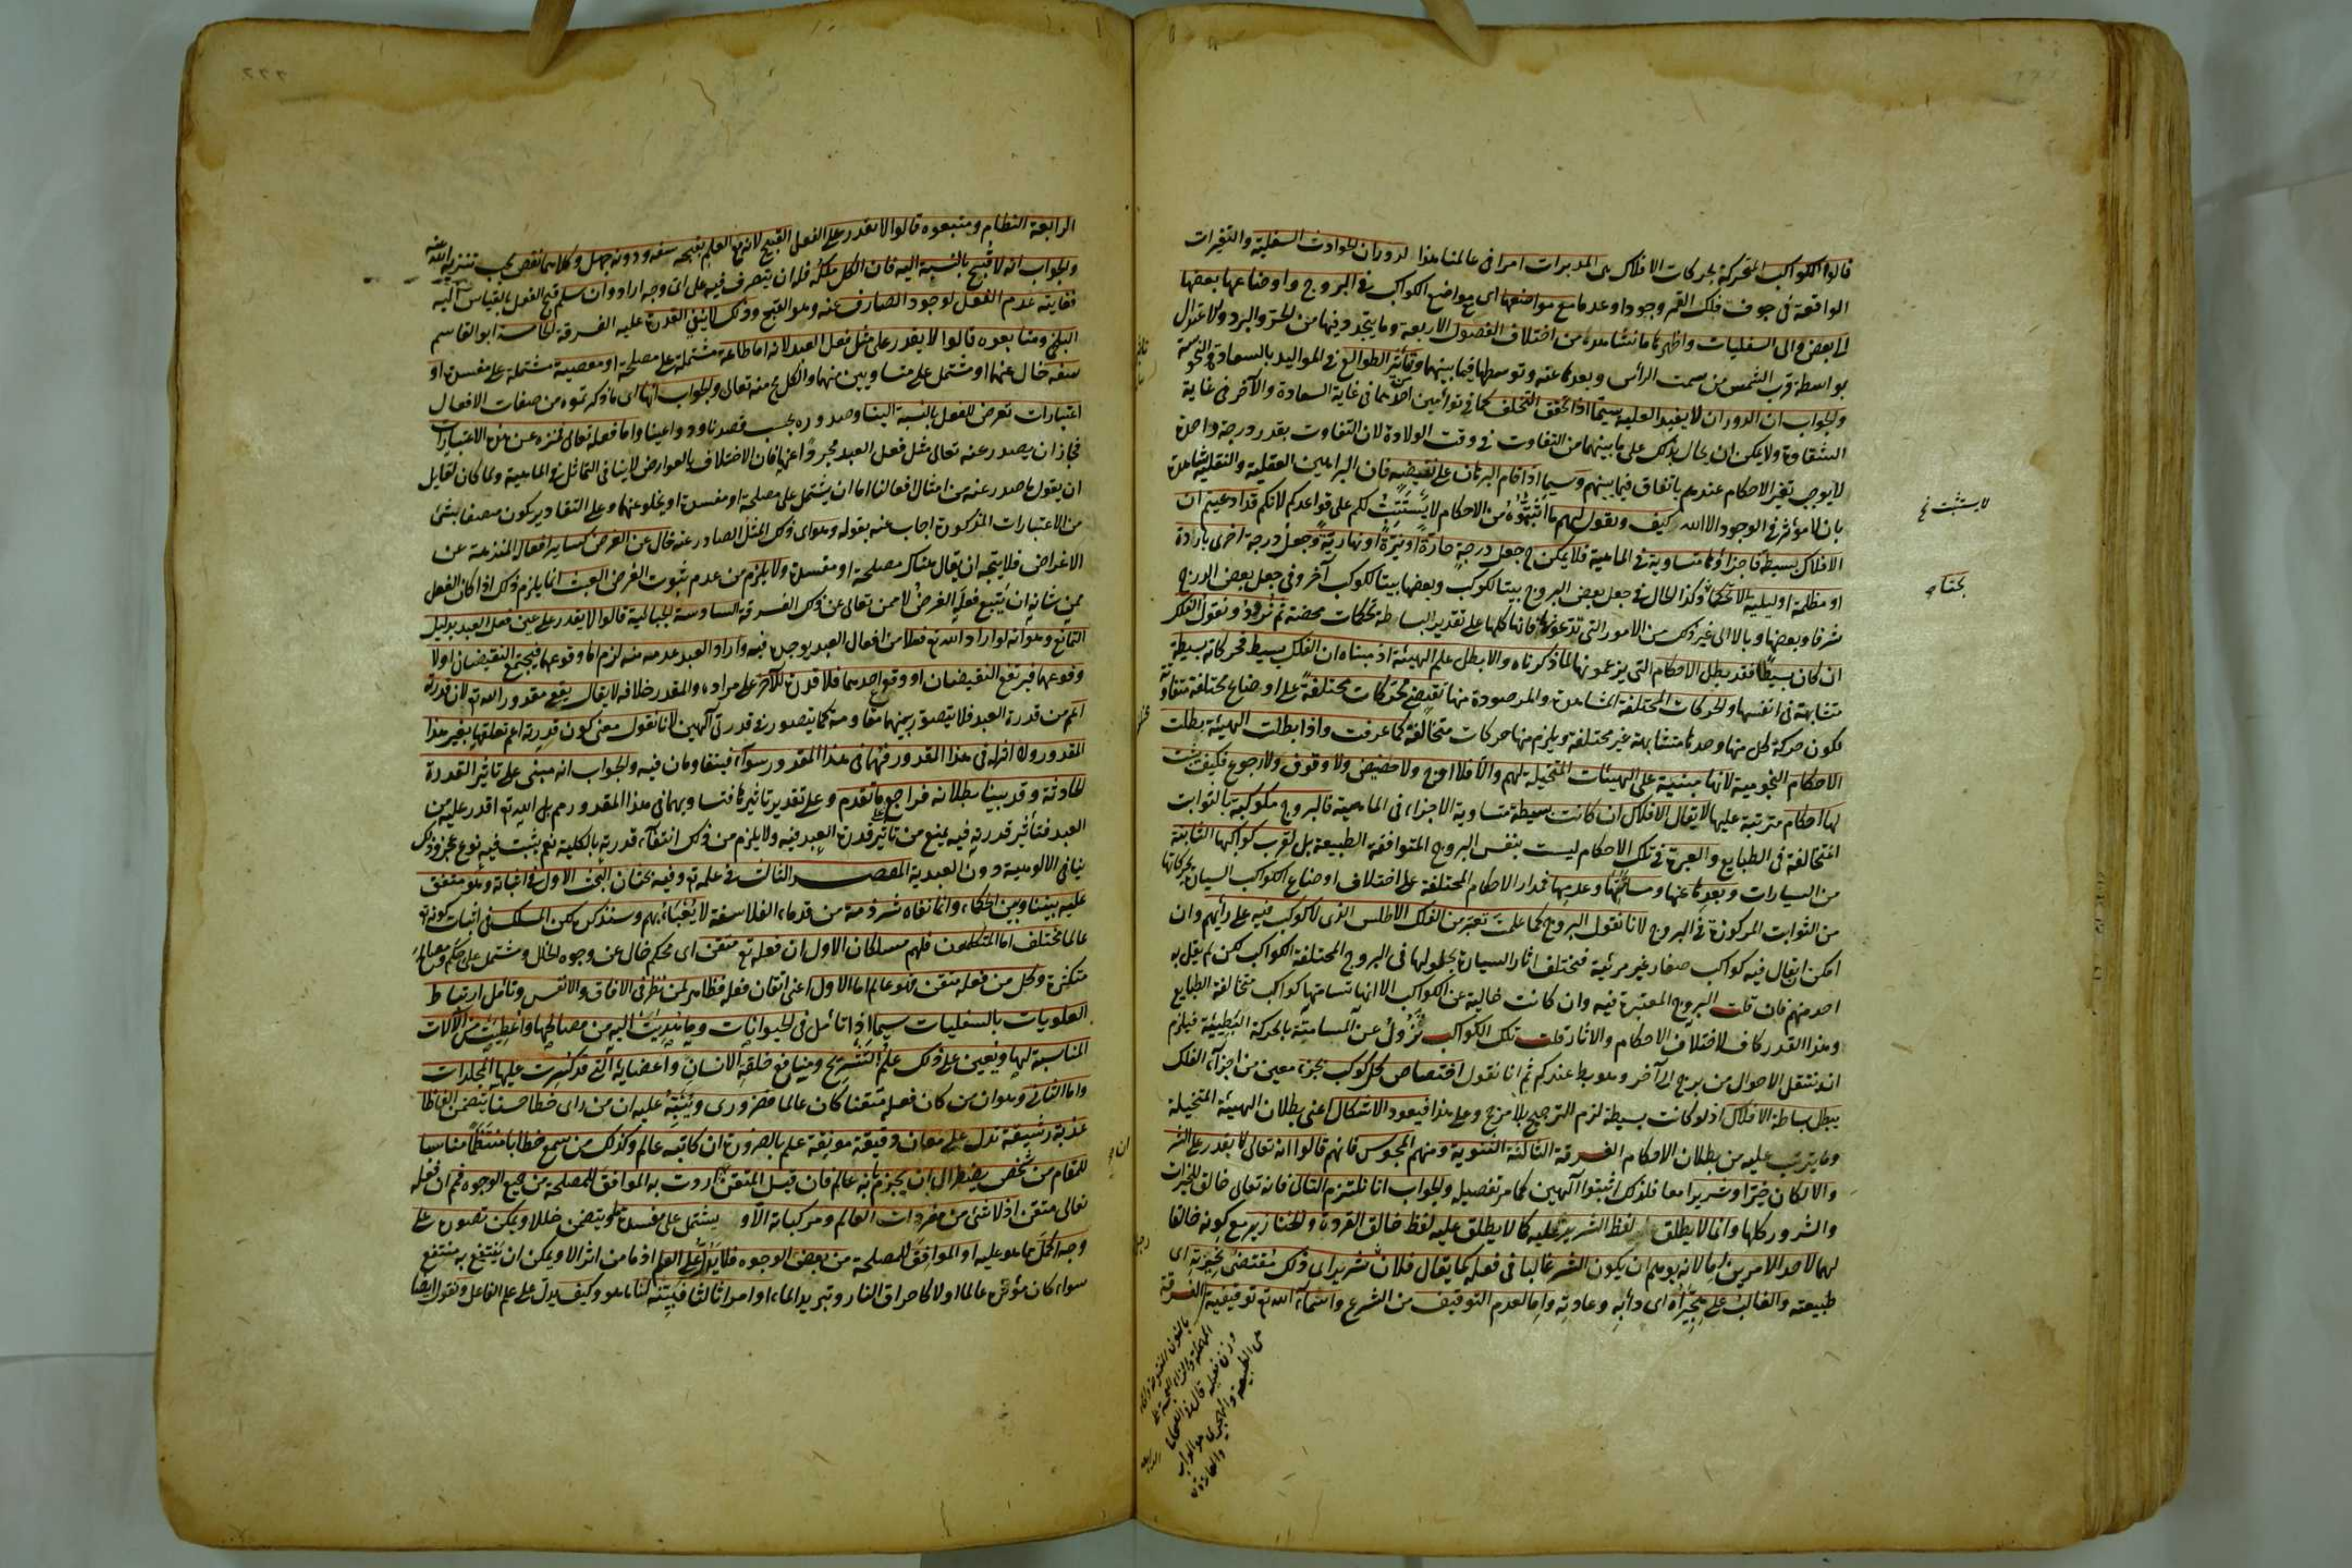 قالوا الكواكب المتحركة بحركات الافلاك هى المدبرات امرا فى عالمنا هذا لدوران الحوادث السفلية والتغيرات
الواقعة فى جوف فلك القمر وجودا وعدما مع مواضعها اى مواضع الكواكب فى البروج واوضاعها بعضها
الى بعض والى السفليات واظهرها ما نشاهده من اختلاف الفصول الاربعة وما يتجدد فيها من الحر والبرد والاعتدال
بواسطة قرب الشمس من سمت الرأس وبعدها عنه وتوسطها فيما بينهما وتأثير الطوالع فى المواليد بالسعادة والنحوسة
والجواب ان الدوران لا يفيد العلية سيما اذا تحقق التخلف كما فى توأمين احدهما فى غاية السعادة والآخر فى غاية
الشقاوة ولا يمكن ان يحال بذلك على ما بينهما من التفاوت فى وقت الولادة لان التفاوت بقدر درجة واحدة
لا يوجب تغير الاحكام عندهم باتفاق فيما بينهم وسيما اذا قام البرهان على نقيضه فان البراهين العقلية والنقلية شاهدة
بان لا مؤثر فى الوجود الا الله كيف ونقول لهم ما اثبتموه من الاحكام لا يستتب لكم على قواعدكم لانكم قد ادعيتم ان
الافلاك بسيطة فاجزاؤها متساوية فى الماهية فلا يمكن ح جعل درجة حارة او نيرة او نهارية وجعل درجة اخرى باردة
او مظلمة او ليلية الا تحكما وكذا الحال فى جعل بعض البروج بيتا لكوكب وبعضها بيتا لكوكب آخر وفى جعل بعض الدرج
شرفا وبعضها وبالا الى غير ذلك من الامور التى تدعونها فانها كلها على تقدير البساطة تحكمات محضة ثم نردد ونقول الفلك
ان كان بسيطا فقد بطل الاحكام التى يزعمونها لما ذكرناه والا بطل علم الهيئة اذ مبناه ان الفلك بسيط فحركاته بسيطة
متشابهة فى انفسها والحركات المختلفة المشاهدة والمرصودة منها تقتضى محركات مختلفة على اوضاع مختلفة متفاوتة
تكون حركة كل منها وحدها متشابهة غير مختلفة ويلزم منها حركات متخالفة كما عرفت واذا بطلت الهيئة بطلت
الاحكام النجومية لانها مبنية على الهيئات المتخيلة لهم والا فلا اوج ولا حضيض ولا وقوف ولا رجوع فكيف يثبت
لها احكام مترتبة عليها لا يقال الافلاك ان كانت بسيطة متساوية الاجزاء فى الماهية فالبروج مكوكبة بالثوابت
المتخالفة فى الطبايع والعبرة فى تلك الاحكام ليست بنفس البروج المتوافقة الطبيعة بل لقرب كواكبها الثابتة
من السيارات وبعدها عنها ومسامتتها وعدمها فمدار الاحكام المختلفة على اختلاف اوضاع الكواكب السيارة بحركاتها
من الثوابت المركوزة فى البروج لانا نقول البروج كما علمت تعتبر من الفلك الاطلس الذى لا كوكب فيه على رأيهم وان
امكن ان يقال فيه كواكب صغار غير مرئية فتختلف آثار السيارة بحلولها فى البروج المختلفة الكواكب لكن لم يقل به
احد منهم فان قلت البروج المعتبرة فيه وان كانت خالية عن الكواكب الا انها تسامتها كواكب متخالفة الطبايع
وهذا القدر كاف لاختلاف الاحكام والآثار قلت تلك الكواكب تزول عن المسامتة بالحركة البطيئة فيلزم
ان تنتقل الاحوال من برج الى آخر وهو بط عندكم ثم انا نقول اختصاص كل كوكب بجزء معين من اجزاء الفلك
يبطل بساطة الافلاك اذ لو كانت بسيطة لزم الترجيح بلا مرجح وعلى هذا فيعود الاشكال اعنى بطلان الهيئة المتخيلة
وما يترتب عليه من بطلان الاحكام الفرقة الثالثة الثنوية ومنهم المجوس فانهم قالوا انه تعالى لا يقدر على الشر
والا لكان خيرا وشريرا معا فلذلك اثبتوا الهين كما مر تفصيله والجواب انا نلتزم التالى فانه تعالى خالق للخيرات
والشرور كلها وانما لا يطلق لفظ الشرير عليه كما لا يطلق عليه لفظ خالق القردة والخنازير مع كونه خالقا
لهما لاحد الامرين اما لانه يوهم ان يكون الشر غالبا فى فعله كما يقال فلان شرير اى ذلك مقتضى نحيزته اى
طبيعته والغالب على هجيراه اى دأبه وعادته واما لعدم التوقيف من الشرع واسماء الله تع توقيفية الفرقة
لا يستثبت خ
الرابعة النظام ومتبعوه قالوا لا يقدر على الفعل القبيح لانه مع العلم بقبحه سفه ودونه جهل وكلاهما نقص يجب تنزيه الله عنه
والجواب انه لا قبيح بالنسبة اليه فان الكل ملكه فله ان يتصرف فيه على اى وجه اراد وان سلم قبح الفعل بالقياس اليه
فغايته عدم الفعل لوجود الصارف عنه وهو القبح وذلك لا ينفى القدرة عليه الفرقة الخامسة ابو القاسم
البلخى ومتابعوه قالوا لا يقدر على مثل فعل العبد لانه اما طاعة مشتملة على مصلحة او معصية مشتملة على مفسدة او
سفه خال عنهما او مشتمل على متساويين منهما والكل مح منه تعالى والجواب انها اى ما ذكرتموه من صفات الافعال
اعتبارات تعرض للفعل بالنسبة الينا وصدوره بحسب قصدنا ودواعينا واما فعله تعالى فمنزه عن هذه الاعتبارات
فجاز ان يصدر عنه تعالى مثل فعل العبد مجردا عنها فان الاختلاف بالعوارض لا ينافى التماثل فى الماهية ولما كان لقايل
ان يقول ما صدر عنه من امثال افعالنا اما ان يشتمل على مصلحة او مفسدة او يخلو عنهما وعلى التقادير يكون متصفا بشئ
من الاعتبارات المذكورة اجاب عنه بقوله وهو اى ذلك المثل الصادر عنه خال عن الغرض كساير افعاله المنزهة عن
الاغراض فلا يتجه ان يقال هناك مصلحة او مفسدة ولا يلزم من عدم ثبوت الغرض العبث انما يلزم ذلك اذا كان الفعل
ممن شانه ان يتبع فعله الغرض لا ممن تعالى عن ذلك الفرقة السادسة الجبائية قالوا لا يقدر على عين فعل العبد بدليل
التمانع وهو انه لو اراد الله تع فعلا من افعال العبد يوجده فيه واراد العبد عدمه منه لزم اما وقوعهما فيجتمع النقيضان او لا
وقوعهما فيرتفع النقيضان او وقوع احدهما فلا قدرة للآخر على مراده والمقدر خلافه لا يقال يقع مقدور الله تع لان قدرته
اعم من قدرة العبد فلا يتصور بينهما مقاومة كما يتصور فى قدرتى الهين لانا نقول معنى كون قدرته اعم تعلقها بغير هذا
المقدور ولا اثر له فى هذا المقدور فهما فى هذا المقدور سواء فيتقاومان فيه والجواب انه مبنى على تاثير القدرة
الحادثة وقد بينا بطلانه فراجع ما تقدم وعلى تقدير تاثيرها فتساويهما فى هذا المقدور مم بل الله تع اقدر عليه من
العبد فتأثير قدرته فيه يمنع من تاثير قدرة العبد فيه ولا يلزم من ذلك انتفاء قدرته بالكلية نعم يثبت فيه نوع عجز وذلك
ينافى الالوهية دون العبدية المقصد الثالث فى علمه تع وفيه بحثان البحث الاول فى اثباته وهو متفق
عليه بيننا وبين الحكماء وانما نفاه شرذمة من قدماء الفلاسفة لا يعبأ بهم وسنذكره لكن المسلك فى اثبات كونه تع
عالما مختلف اما المتكلمون فلهم مسلكان الاول ان فعله تع متقن اى محكم خال عن وجوه الخلل ومشتمل على حكم ومصالح
متكثرة وكل من فعله متقن فهو عالم اما الاول اعنى اتقان فعله فظاهر لمن نظر فى الآفاق والانفس وتأمل ارتباط
العلويات بالسفليات سيما اذا تأمل فى الحيوانات وما هديت اليه من مصالحها واعطيت من الآلات
المناسبة لها ويعين على ذلك علم التشريح ومنافع خلقة الانسان واعضايه التى قد كسرت عليها المجلدات
واما الثانى وهو ان من كان فعله متقنا كان عالما فضرورى وينبه عليه ان من راى خطا حسنا يتضمن الفاظا
عذبة رشيقة تدل على معان دقيقة مونقة علم بالضرورة ان كاتبه عالم وكذلك من سمع خطابا منتظما مناسبا
للمقام من شخص يضطر الى ان يجزم بانه عالم فان قيل المتقن ان اردت به الموافق للمصلحة من جميع الوجوه فمم ان فعله
تعالى متقن اذ لا شئ من مفردات العالم ومركباته الا و يشتمل على مفسدة ما ويتضمن خللا ويمكن تصوره على
وجه اكمل مما هو عليه او الموافق للمصلحة من بعض الوجوه فلا يدل على العلم اذ ما من اثر الا ويمكن ان ينتفع به منتفع
سواء كان مؤثره عالما او لا كاحراق النار وتبريد الماء او امرا ثالثا فبينه لنا ما هو وكيف يدل على علم الفاعل ونقول ايضا